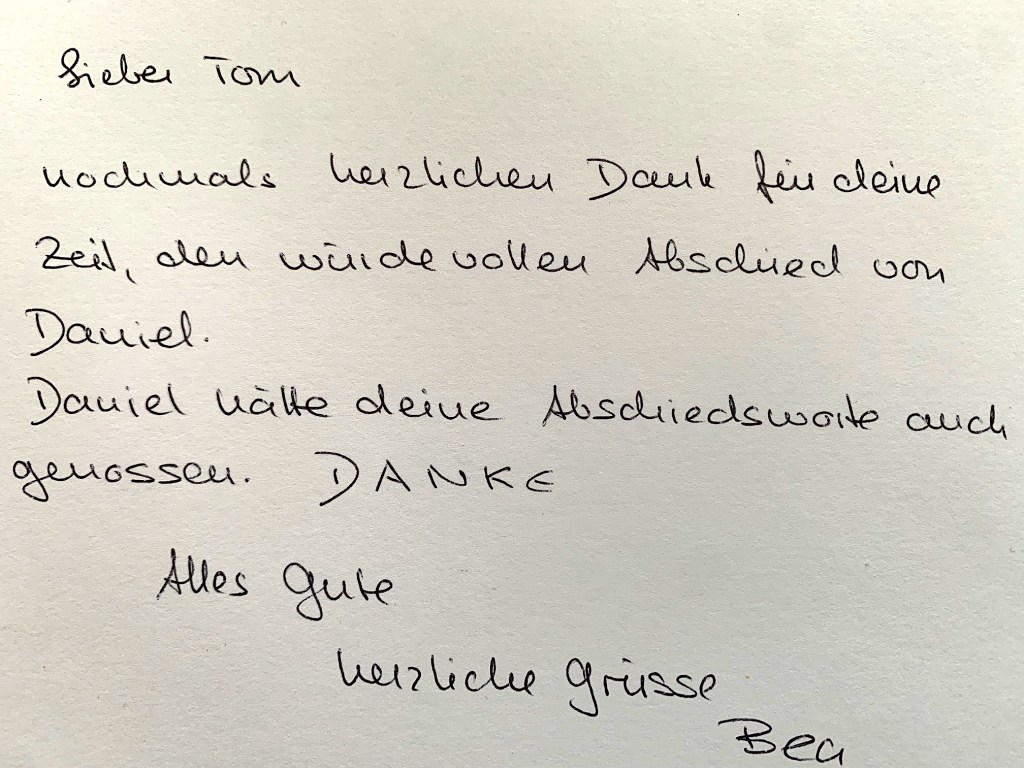 Lieber Tom
nochmals herzlichen Dank für deine
Zeit, den würdevollen Abschied von
Daniel.
Daniel hätte deine Abschiedsworte auch
genossen. DANKE
Alles Gute
herzliche Grüsse
Bea